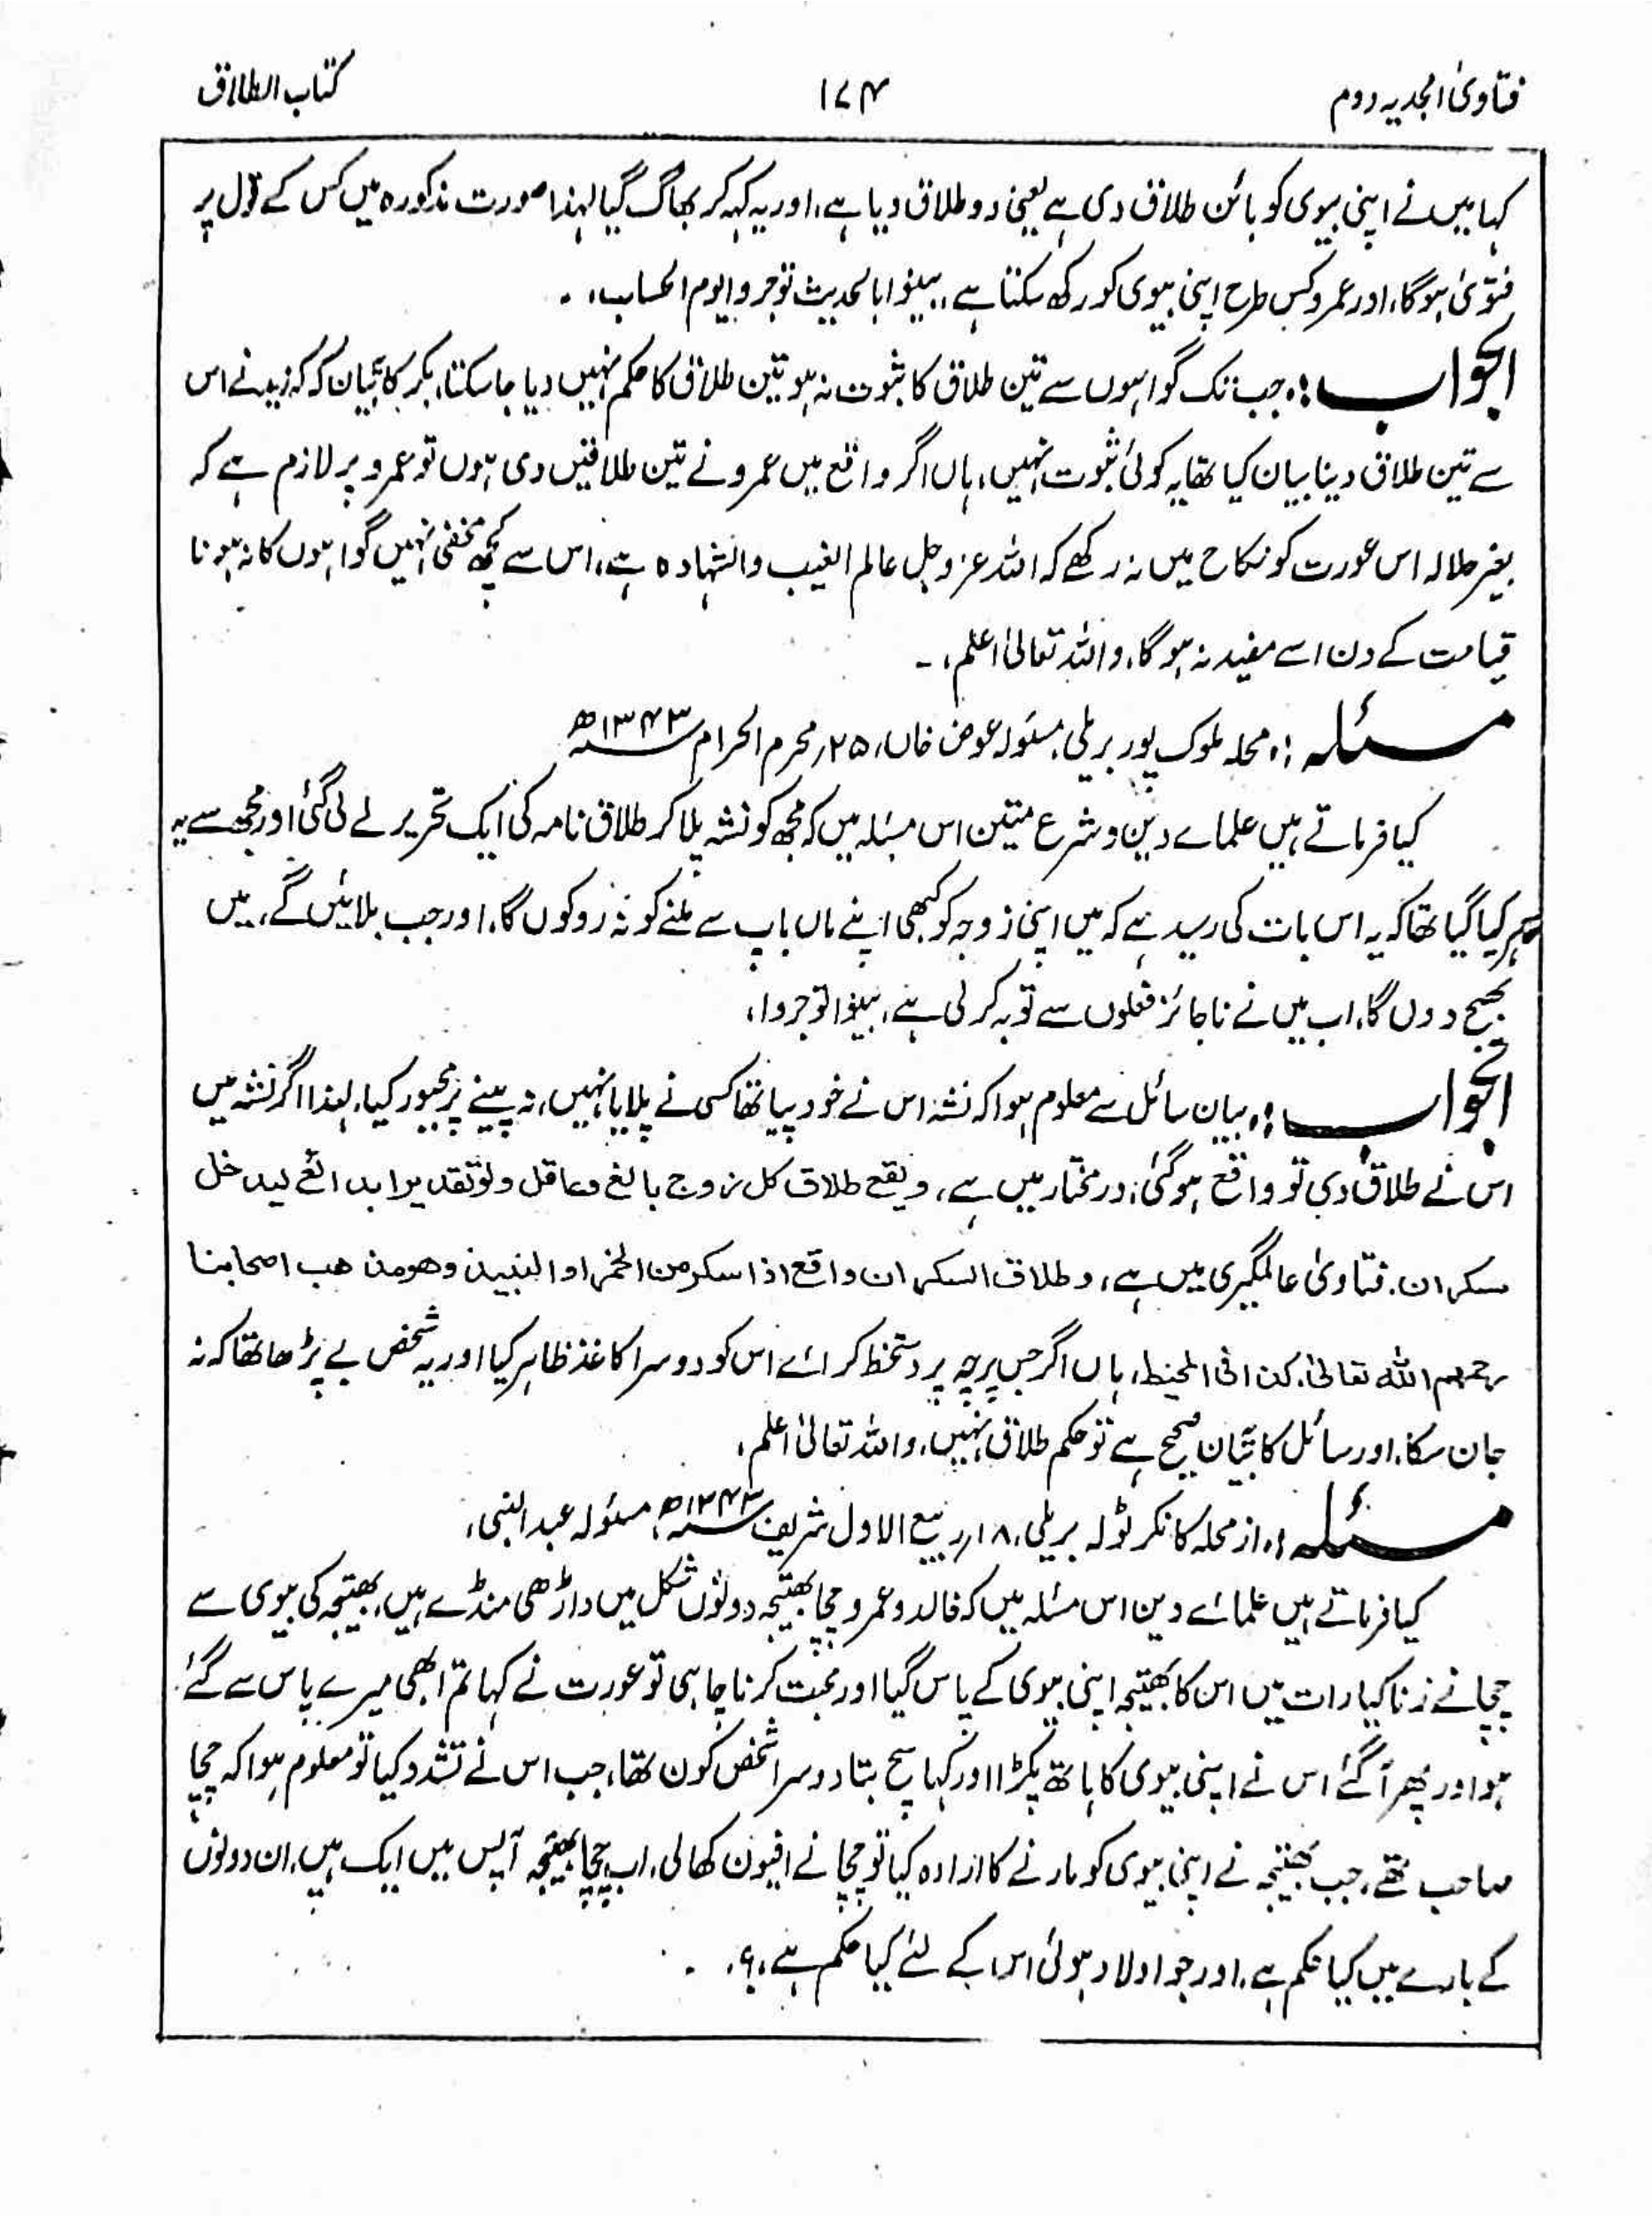 فتاویٰ امجدیہ دوم
۱۷۴
کتاب الطلاق
کہا میں نے اپنی بیوی کو بائن طلاق دی ہے یعنی دو طلاق دیا ہے، اور یہ کہہ کر بھاگ گیا لہٰذا صورت مذکورہ میں کس کے قول پر
فتویٰ ہوگا، اور عمرو کس طرح اپنی بیوی کو رکھ سکتا ہے، بینوا بالحدیث توجروا یوم الحساب، ۔
الجواب :، جب تک گواہوں سے تین طلاق کا ثبوت نہ ہو تین طلاق کا حکم نہیں دیا جاسکتا، بکر کا بیان کہ کہ زید نے اس
سے تین طلاق دینا بیان کیا تھا یہ کوئی ثبوت نہیں، ہاں اگر واقع میں عمرو نے تین طلاقیں دی ہوں تو عمرو پر لازم ہے کہ
بغیر حلالہ اس عورت کو نکاح میں نہ رکھے کہ اللہ عزوجل عالم الغیب والشہادہ ہے، اس سے کچھ مخفی نہیں گواہوں کا نہ ہونا
قیامت کے دن اسے مفید نہ ہوگا، واللہ تعالیٰ اعلم، ۔
مسئلہ :، محلہ ملوک پور بریلی مسئولہ عوض خاں، ۲۵؍ محرم الحرام ۱۳۴۳ھ
کیا فرماتے ہیں علمائے دین و شرع متین اس مسئلہ میں کہ مجھ کو نشہ پلا کر طلاق نامہ کی ایک تحریر لے لی گئی اور مجھ سے یہ
کیا گیا تھا کہ یہ اس بات کی رسید ہے کہ میں اپنی زوجہ کو کبھی اپنے ماں باپ سے ملنے کو نہ روکوں گا، اور جب بلائیں گے، میں
بھیج دوں گا، اب میں نے ناجائز فعلوں سے توبہ کرلی ہے، بینوا توجروا،
الجواب :، بیان سائل سے معلوم ہوا کہ نشہ اس نے خود پیا تھا کسی نے پلایا نہیں، نہ پینے پر مجبور کیا، لہٰذا اگر نشہ میں
اس نے طلاق دی تو واقع ہوگئی، درمختار میں ہے، ویقع طلاق کل زوج بالغ عاقل ولو تقدیرا بدائع لیدخل
سکران، فتاویٰ عالمگیری میں ہے، وطلاق السکران واقع اذا سکر من الخمر او النبیذ وھو مذھب اصحابنا
رحمہم اللہ تعالیٰ کذا فی المحیط، ہاں اگر جس پرچہ پر دستخط کرائے اس کو دوسرا کاغذ ظاہر کیا اور یہ شخص بے پڑھا تھا کہ نہ
جان سکا، اور سائل کا بیان صحیح ہے تو حکم طلاق نہیں، واللہ تعالیٰ اعلم،
مسئلہ :، از محلہ کانکر ٹولہ بریلی، ۱۸؍ ربیع الاول شریف ۱۳۴۳ھ، مسئولہ عبدالنبی،
کیا فرماتے ہیں علمائے دین اس مسئلہ میں کہ خالد و عمرو چچا بھتیجہ دونوں شکل میں داڑھی منڈے ہیں، بھتیجہ کی بیوی سے
چچا نے زنا کیا رات میں اس کا بھتیجہ اپنی بیوی کے پاس گیا اور محبت کرنا چاہی تو عورت نے کہا تم ابھی میرے پاس سے گئے
ہو اور پھر آگئے اس نے اپنی بیوی کا ہاتھ پکڑا اور کہا سچ بتا دوسرا شخص کون تھا، جب اس نے تشدد کیا تو معلوم ہوا کہ چچا
صاحب تھے، جب بھتیجہ نے اپنی بیوی کو مارنے کا ارادہ کیا تو چچا نے افیون کھالی، اب چچا بھتیجہ آپس میں ایک ہیں، ان دونوں
کے بارے میں کیا حکم ہے، اور جو اولاد ہوئی اس کے لئے کیا حکم ہے،؟، ۔